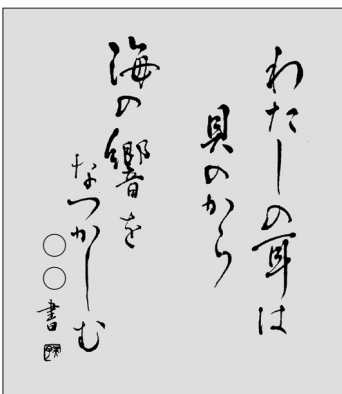 わたしの耳は
貝のから
海の響を
なつかしむ
○○書